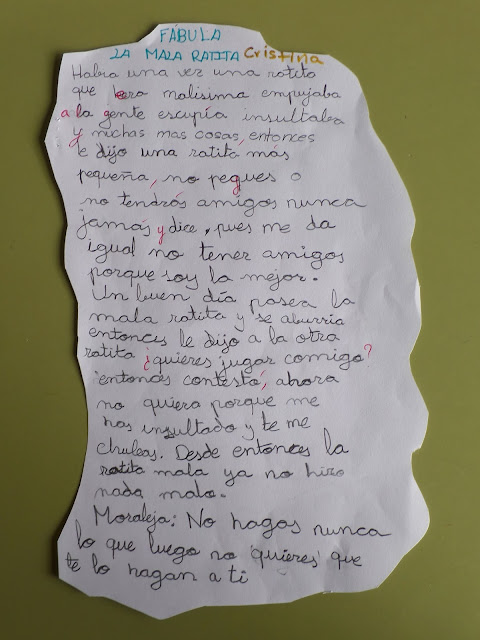 FÁBULA
LA MALA RATITA Cristina
Habia una vez una ratita
que era malisima empujaba
a la gente escupía insultaba
y muchas mas cosas, entonces
le dijo una ratita más
pequeña, no pegues o
no tendrás amigos nunca
jamás y dice, pues me da
igual no tener amigos
porque soy la mejor.
Un buen día pasea la
mala ratita y se aburria
entonces le dijo a la otra
ratita ¿quieres jugar comigo?
entonces contesta, ahora
no quiero porque me
has insultado y te me
chuleas. Desde entonces la
ratita mala ya no hizo
nada malo.
Moraleja: No hagas nunca
lo que luego no quieres que
te lo hagan a ti